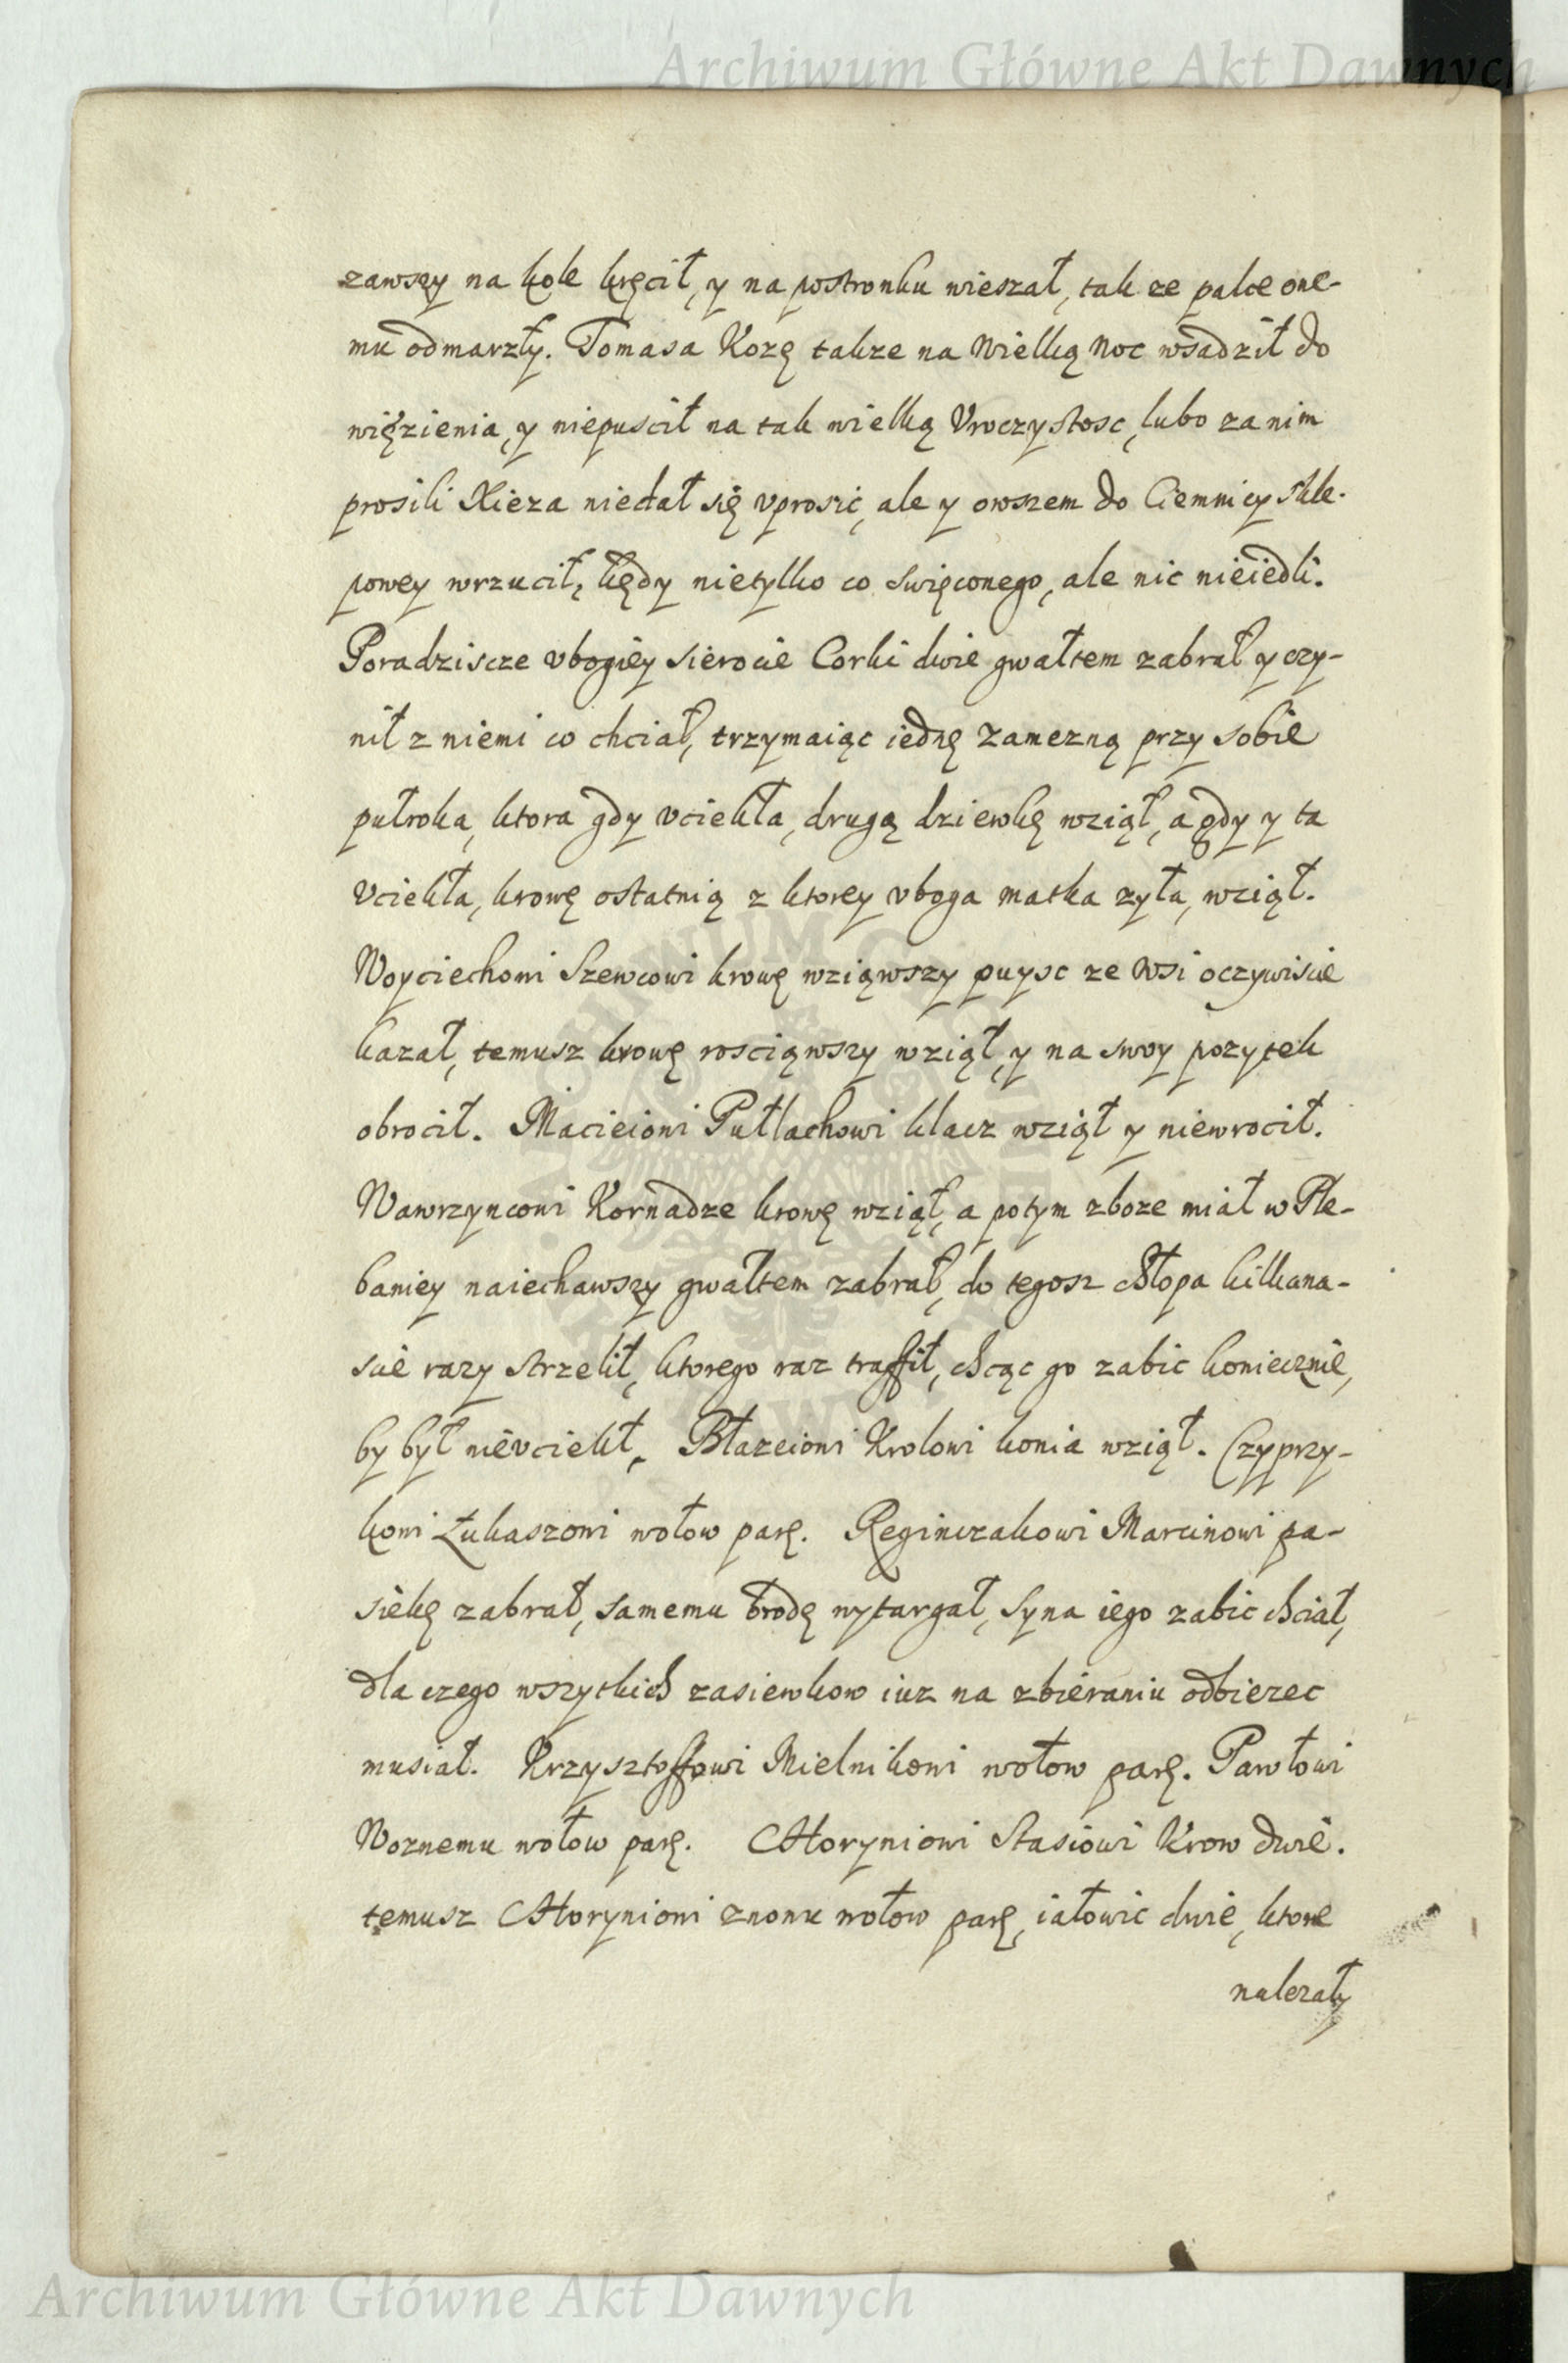 Archiwum Główne Akt Dawnych
zawszy na kole kręcił, y na postronku wieszał, tak ze palce one-
mu odmarzły. Tomasa Kozę takze na Wielką Noc wsadził do
więzienia, y niepuscił na tak wielką Vroczystosc, lubo za nim
prosili Xieza niedał się vprosic, ale y owszem do Ciemnicy skle-
powey wrzucił, kędy nietylko co swięconego, ale nic nieiedli.
Poradziscze vbogiey sierocie Corki dwie gwałtem zabrał y czy-
nił z niemi co chciał, trzymaiąc iednę zamezną przy sobie
pułroka, ktora gdy vciekła, drugą dziewkę wziął, a gdy y ta
vciekła, krowę ostatnią z ktorey vboga matka zyła, wziął.
Woyciechowi Szewcowi krowę wziąwszy puysc ze wsi oczywiscie
kazał, temusz krowę rosciąwszy wziął, y na swoy pozytek
obrocił. Macieiowi Putlachowi klacz wziął y niewrocił.
Wawrzyncowi Kornadze krowę wziął, a potym zboze miał w Ple-
baniey naiechawszy gwałtem zabrał, do tegosz chłopa kilkana-
scie razy strzelił, ktorego raz traffił, chcąc go zabic koniecznie,
by był nievciekł. Błazeiowi Krolowi konia wziął. Czyprzy-
kowi Łukaszowi wołow parę. Reginczakowi Marcinowi pa-
siekę zabrał, samemu brodę wytargał, syna iego zabic chciał,
dla czego wszytkich zasiewkow iuz na zbieraniu odbiezec
musiał. Krzysztoffowi Mielnikowi wołow parę. Pawłowi
Woznemu wołow parę. Choryniowi Stasiowi Krow dwie.
temusz Choryniowi znowu wołow parę, iałowic dwie, ktore
nalezały
Archiwum Główne Akt Dawnych